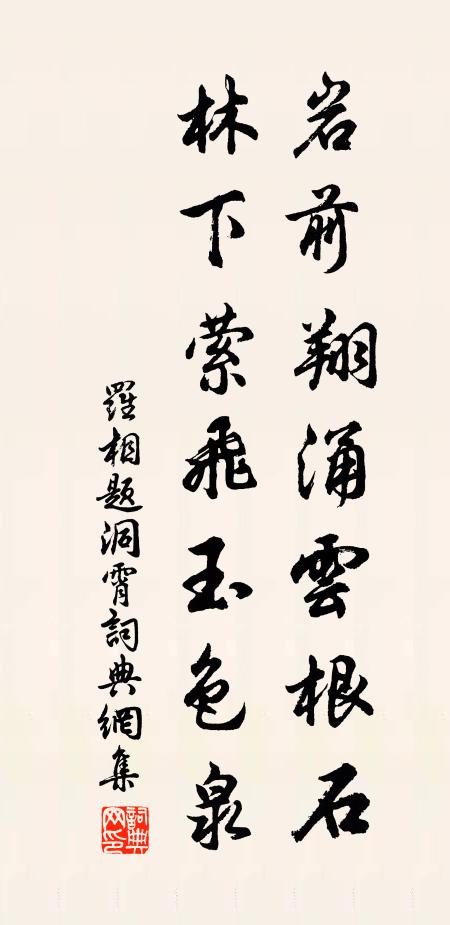 岩前翔涌雲根石
林下縈飛玉色泉
羅相題洞霄詞典網集
詞典网印